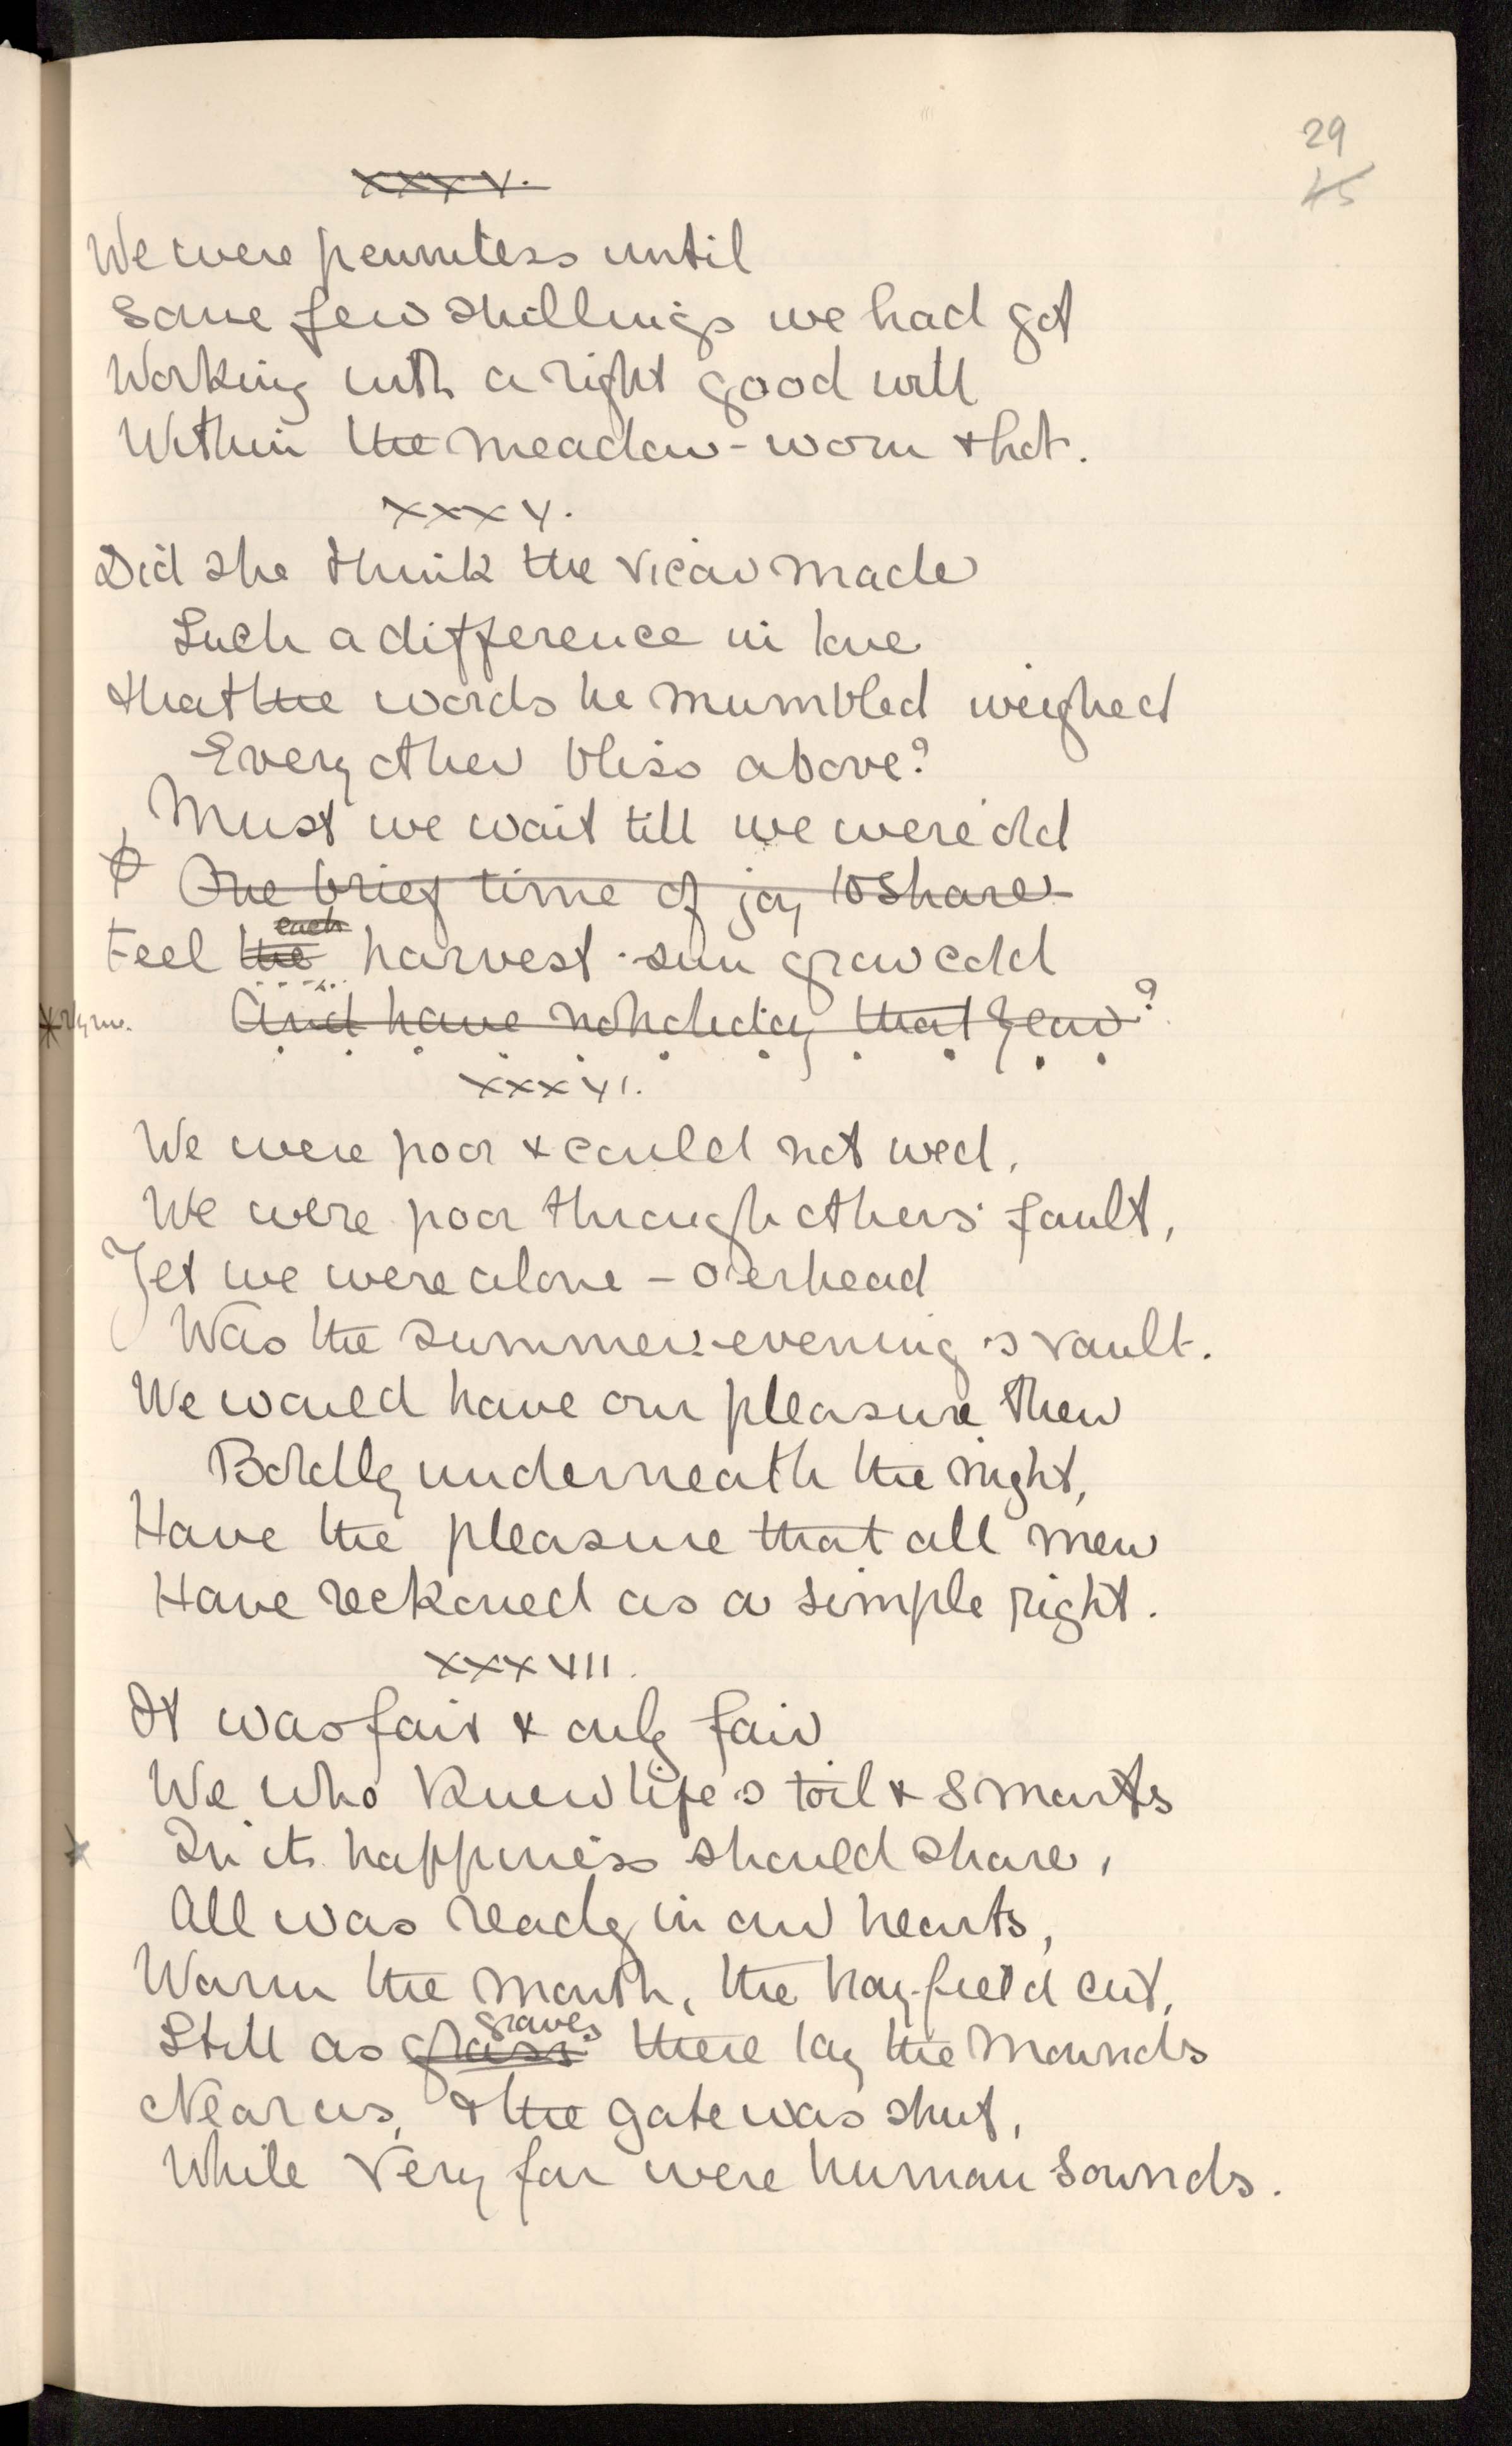 29
45
XXXV.
We were penniless until
Some few shillings we had got
Working with a right good will
Within the meadow - worn & hot.
XXXV.
Did she think the vicar made
Such a difference in love
that the words he mumbled weighed
Every other bliss above?
Must we wait till we were old
One brief time of joy to share
each
Feel the harvest-sun grow cold
And have no holiday that year?
XXXVI.
We were poor & could not wed,
We were poor through others' fault,
Yet we were alone - o'erhead
Was the summer-evening's vault.
We would have our pleasure then
Boldly underneath the night,
Have the pleasure that all men
Have reckoned as a simple right.
XXXVII.
It was fair & only fair
We who knew life's toil & smarts
In its happiness should share,
All was ready in our hearts,
Warm the month, the hay-field cut,
graves
Still as grass there lay the mounds
Near us, & the gate was shut,
While very far were human sounds.